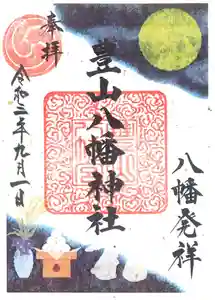 八幡発祥
奉拝
豊山八幡神社
令和三年九月一日